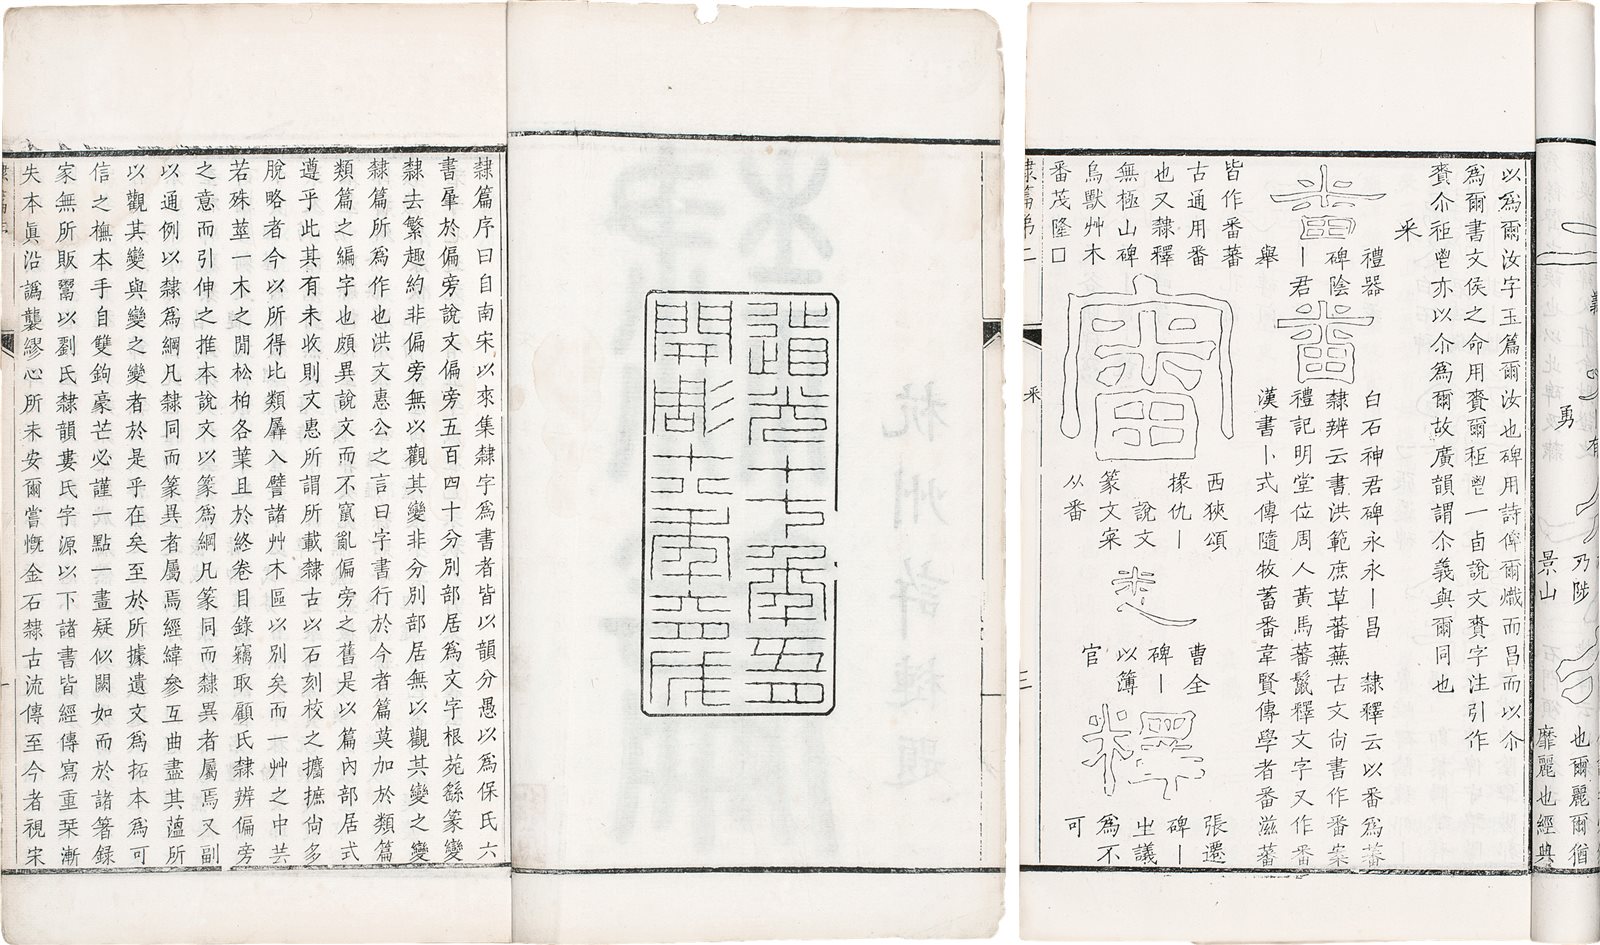 隸篇序曰自南宋以來集隸字爲書者皆以韻分愚以爲保氏六
書肇於偏旁說文偏旁五百四十分別部居爲文字根苑繇篆變
隸去繁趣約非偏旁無以觀其變非分別部居無以觀其變之變
隸篇所爲作也洪文惠公之言曰字書行於今者篇莫加於類篇
類篇之編字也頗異說文而不竄亂偏旁之舊是以篇內部居式
遵乎此其有未收則文惠所謂所載隸古以石刻校之攟摭尙多
脫略者今以所得比類羼入譬諸艸木區以別矣而一艸之中芸
若殊莖一木之閒松柏各葉且於終卷目錄竊取顧氏隸辨偏旁
之意而引伸之推本說文以篆爲綱凡篆同而隸異者屬焉又副
以通例以隸爲綱凡隸同而篆異者屬焉經緯參互曲盡其薀所
以觀其變與變之變者於是乎在矣至於所據遺文爲拓本爲可
信之橅本手自雙鉤豪芒必謹一點一畫疑似闕如而於諸箸錄
家無所販鬻以劉氏隸韻婁氏字源以下諸書皆經傳寫重栞漸
失本眞沿譌襲繆心所未安爾嘗慨金石隸古流傳至今者視宋
道光十七年五四
開彫十八年六
以爲爾汝字玉篇爾汝也碑用詩俾爾熾而昌而以尒
爲爾書文侯之命用賚爾秬鬯一卣說文賚字注引作
賚尒秬鬯亦以尒爲爾故廣韻謂尒義與爾同也
釆
禮器
碑陰
丨君
番
番
白石神君碑永永丨昌
隸釋云以番爲蕃
隸辨云書洪範庶草蕃蕪古文尙書作番案
禮記明堂位周人黃馬蕃鬣釋文字又作番
漢書卜式傳隨牧蓄番韋賢傳學者番滋蕃
皆作番蕃
古通用番
也又隸釋
無極山碑
鳥獸艸木
番茂隆□
西狹頌
掾仇丨
說文
篆文寀
从番
曹全
碑丨
以簿
官
釋
張遷
碑丨
㞢議
爲不
可
隸篇弟二
釆
三
景山